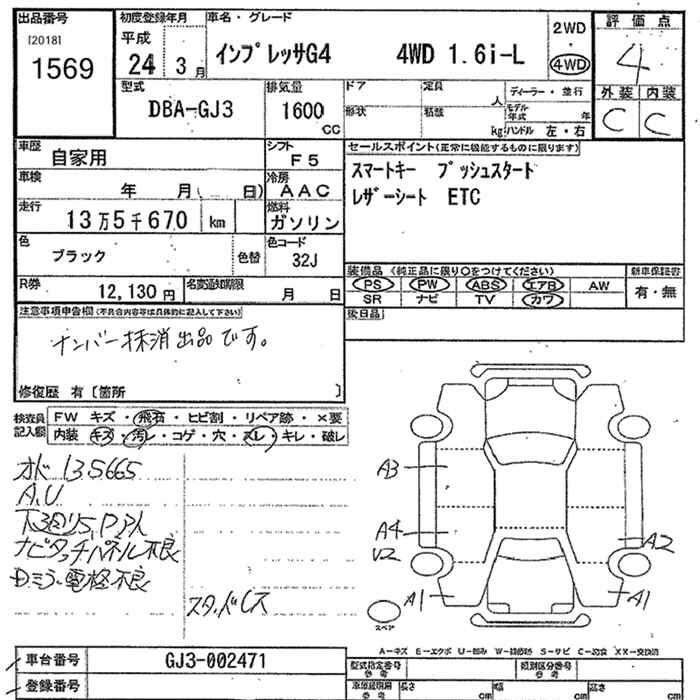 出品番号
[2018]
1569
初度登録年月
平成
24 3月
車名・グレード
インプレッサG4 4WD 1.6i-L
2WD
・
4WD
評価点
4
外装 内装
C C
型式
DBA-GJ3
排気量
1600
CC
ドア
定員
人
形状
積載
kg
ディーラー・並行
モデル年式 年
ハンドル 左・右
車歴
自家用
シフト
F5
車検
年 月( 日)
冷房
AAC
走行
13万5千670 km
燃料
ガソリン
色
ブラック
色替
色コード
32J
R券
12,130円
名変通知期限
月 日
セールスポイント(正常に機能するものに限ります)
スマートキー プッシュスタート
レザーシート ETC
装備品(純正品に限り○をつけてください)
新車保証書
PS PW ABS エアB AW
SR ナビ TV カワ
有・無
後日品
注意事項申告欄(不具合内容等は具体的に記入して下さい)
ナンバー抹消出品です。
修復歴 有〔箇所 〕
検査員
記入欄
FW キズ・飛石・ヒビ割・リペア跡・×要
内装 キズ・汚レ・コゲ・穴・スレ・キレ・破レ
オド 135665
A,U
ナビタッチパネル不良
Dミラー電格不良
スタッドレス
A3
A4
U2
A1
A2
A1
スペア
A-キズ E-エクボ U-凹み W-補修跡 S-サビ C-腐食 XX-交換済
車台番号
GJ3-002471
登録番号
型式指定番号
参考
類別区分番号
参考
車体寸法
参考
長さ cm
幅 cm
高さ cm